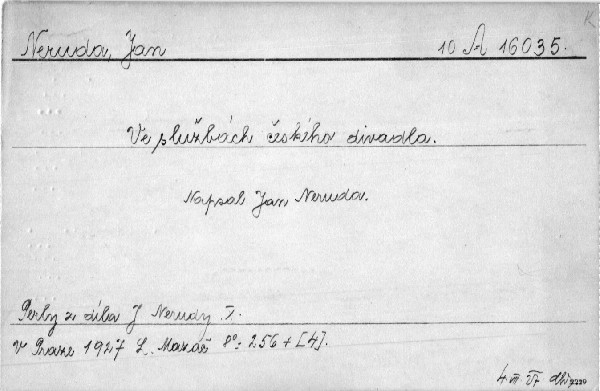 Neruda, Jan 10 A 16035.
Ve službách českého divadla.
Napsal Jan Neruda.
Perly z díla J Nerudy I.
V Praze 1927 L. Mazáč 8°: 256 + [4].
4. III.